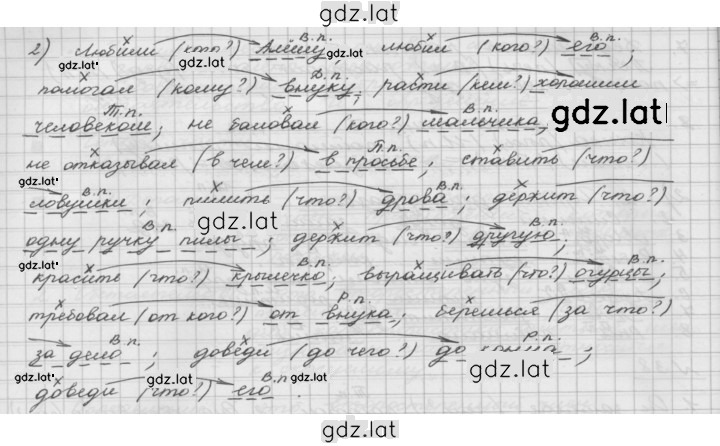 gdz.lat
2) Любили (кого?) Алёшу, любил (кого?) его;
В.п. В.п.
помогал (кому?) внуку, расти (кем?) хорошим
Д.п.
человеком; не баловал (кого?) мальчика,
Т.п. В.п.
не отказывал (в чем?) в просьбе; ставить (что?)
П.п.
ловушки; пилить (что?) дрова; держит (что?)
В.п. В.п.
одну ручку пилы; держит (что?) другую;
В.п. В.п.
красите (что?) крылечко; выращивать (что?) огурцы;
В.п. В.п.
требовал (от кого?) от внука; берешься (за что?)
Р.п.
за дело; доведи (до чего?) до
В.п. Р.п.
доведи (что?) его.
В.п.
gdz.lat
gdz.lat
gdz.lat
gdz.lat
gdz.lat
gdz.lat
gdz.lat
gdz.lat
gdz.lat
gdz.lat
gdz.lat